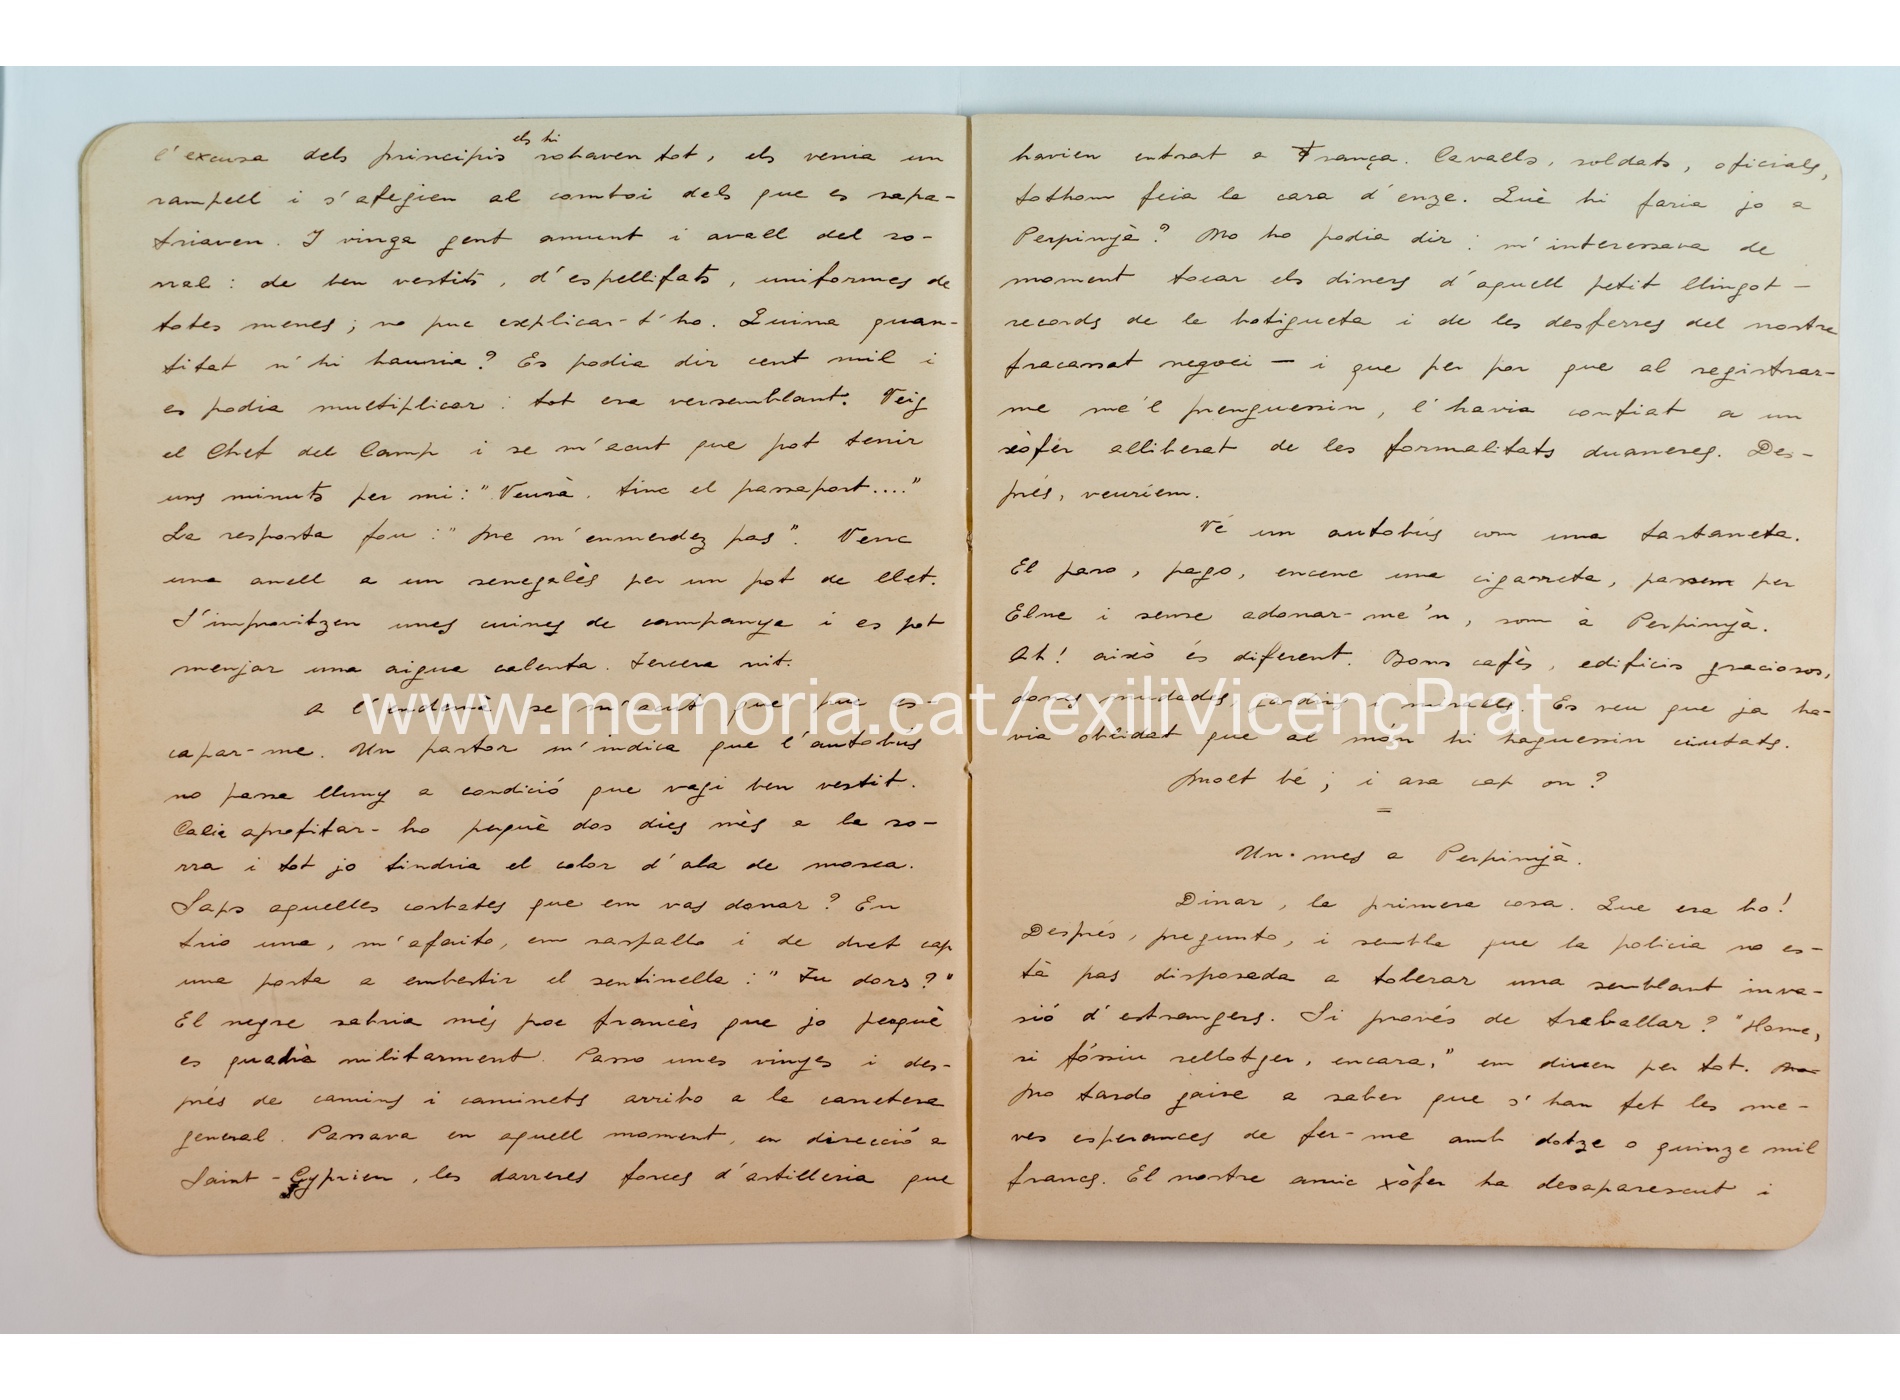 els hi
l'excusa dels principis robaven tot, els venia un
rampell i s'afegien al comboi dels que es repa-
triaven. I vinga gent amunt i avall del so-
rral: de ben vestits, d'espellifats, uniformes de
totes menes; no puc explicar-t'ho. Quina quan-
titat n'hi hauria? Es podia dir cent mil i
es podia multiplicar: tot era versemblant. Veig
el Chef del Camp i se m'acut que pot tenir
uns minuts per mi: "Veurà, tinc el passaport...."
La resposta fou: "Ne m'enmerdez pas". Venc
una anell a un senegalès per un pot de llet.
S'improvitzen unes cuines de campanya i es pot
menjar una aigua calenta. Tercera nit.
A l'endemà se m'acut que puc es-
capar-me. Un pastor m'indica que l'autobús
no passa lluny a condició que vagi ben vestit.
Calia aprofitar-ho perquè dos dies més a la so-
rra i tot jo tindria el color d'ala de mosca.
Saps aquelles corbates que em vas donar? En
trio una, m'afaito, em raspallo i de dret cap
una porta a embestir el sentinella: "Tu dors?"
El negre sabria més poc francès que jo perquè
es quadrà militarment. Passo unes vinyes i des-
prés de camins i caminets arribo a la carretera
general. Passava en aquell moment, en direcció a
Saint-Cyprien, les darreres forces d'artilleria que
havien entrat a França. Cavalls, soldats, oficials,
tothom feia la cara d'enze. Què hi faria jo a
Perpinyà? No ho podia dir: m'interessava de
moment tocar els diners d'aquell petit llingot -
records de la botigueta i de les desferres del nostre
fracassat negoci — i que per por que al registrar-
me me'l prenguessin, l'havia confiat a un
xòfer alliberat de les formalitats duaneres. Des-
prés, veuríem.
Vé un autobús com una tartaneta.
El paro, pago, encenc una cigarreta, passem per
Elne i sense adonar-me'n, som à Perpinyà.
Ah! això és diferent. Bons cafès, edificis graciosos,
dones mudades, jardins i miralls. Es veu que ja ha-
via oblidat que al món hi haguessin ciutats.
Molt bé; i ara cap on?
=
Un mes a Perpinyà.
Dinar, la primera cosa. Que era ho!
Després, pregunto, i sembla que la policia no es-
tà pas disposada a tolerar una semblant inva-
sió d'estrangers. Si provés de treballar? "Home,
si fóssiu rellotger, encara," em diuen per tot.
No tardo gaire a saber que s'han fet les me-
ves esperances de fer-me amb dotze o quinze mil
francs. El nostre amic xòfer ha desaparescut i
www.memoria.cat/exiliVicençPrat